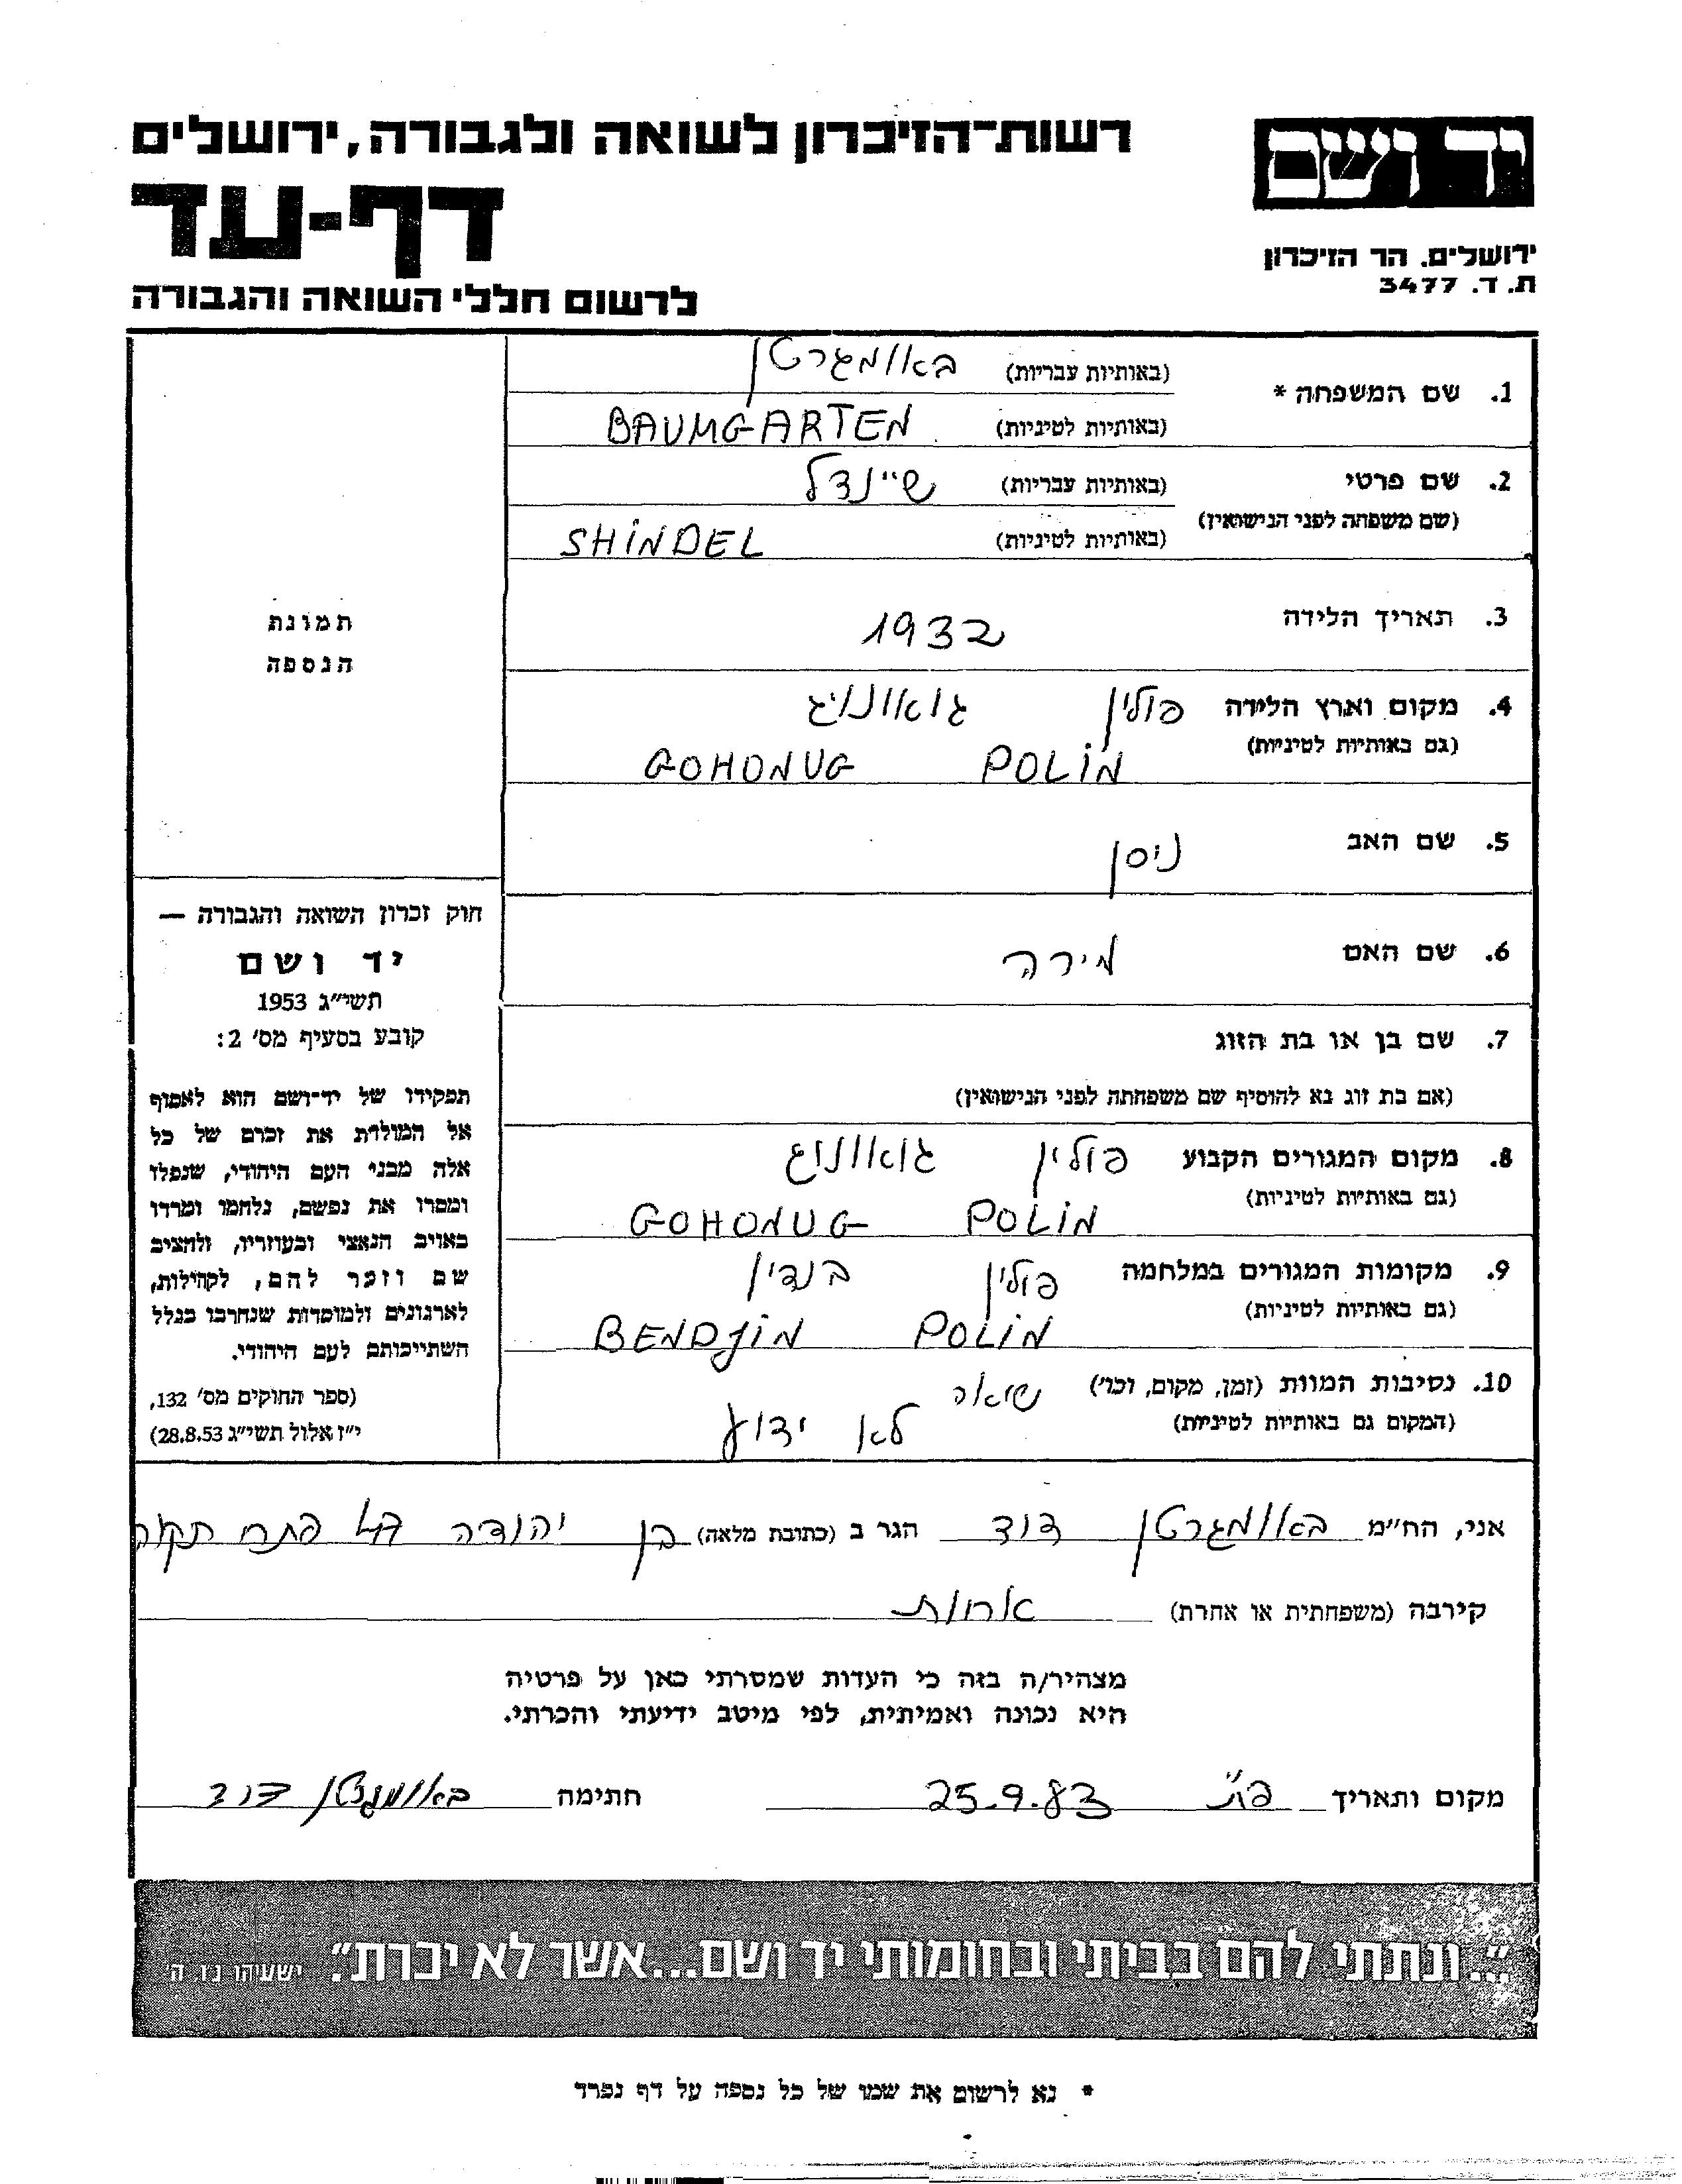 רשות־הזיכרון לשואה ולגבורה, ירושלים
יד ושם
דף-עד
ירושלים. הר הזיכרון
ת. ד. 3477
לרשום חללי השואה והגבורה
1. שם המשפחה * (באותיות עבריות) באומגרטן
(באותיות לטיניות) BAUMGARTEN
2. שם פרטי (באותיות עבריות) שיינדל
(שם משפחה לפני הנישואין)
(באותיות לטיניות) SHINDEL
3. תאריך הלידה 1932
תמונת
הנספה
4. מקום וארץ הלידה פולין
(גם באותיות לטיניות) POLIN GOHONUG
5. שם האב ניסן
6. שם האם מירה
7. שם בן או בת הזוג
(אם בת זוג נא להוסיף שם משפחתה לפני הנישואין)
8. מקום המגורים הקבוע פולין
(גם באותיות לטיניות) POLIN GOHONUG
9. מקומות המגורים במלחמה פולין בנדין
(גם באותיות לטיניות) POLIN BENDJIN
10. נסיבות המוות (זמן, מקום, וכו') שואה
(המקום גם באותיות לטיניות) לא ידוע
חוק זכרון השואה והגבורה —
יד ושם
תשי"ג 1953
קובע בסעיף מס' 2:
תפקידו של יד־ושם הוא לאסוף
אל המולדת את זכרם של כל
אלה מבני העם היהודי, שנפלו
ומסרו את נפשם, נלחמו ומרדו
באויב הנאצי ובעוזריו, ולהציב
שם וזכר להם, לקהילות,
לארגונים ולמוסדות שנחרבו בגלל
השתייכותם לעם היהודי.
(ספר החוקים מס' 132,
י"ז אלול תשי"ג 28.8.53)
אני, הח"מ באומגרטן דוד הגר ב (כתובת מלאה) בן יהודה פתח תקוה
קירבה (משפחתית או אחרת) אחות
מצהיר/ה בזה כי העדות שמסרתי כאן על פרטיה
היא נכונה ואמיתית, לפי מיטב ידיעתי והכרתי.
מקום ותאריך פ"ת 25.9.83 חתימה באומגרטן דוד
"...ונתתי להם בביתי ובחומותי יד ושם...אשר לא יכרת". ישעיהו נו ה'
* נא לרשום את שמו של כל נספה על דף נפרד